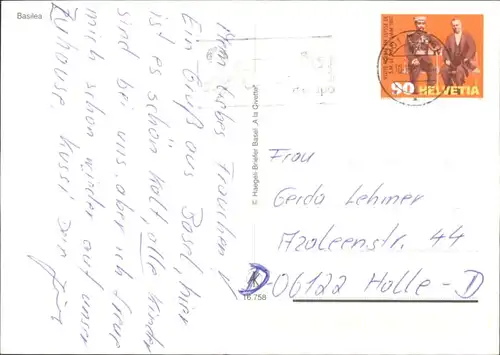 Basilea
Mein liebes Frauchen!
Ein Gruß aus Basel, hier
ist es schön kalt, alle Kinder
sind bei uns. aber ich freue
mich schon wieder auf unser
Zuhause. Kussi Dein
© Haegeli-Briefer Basel „A la Civette"
16.758
90 HELVETIA
Frau
Gerda Lehmer
Azaleenstr. 44
D-06122 Halle-D